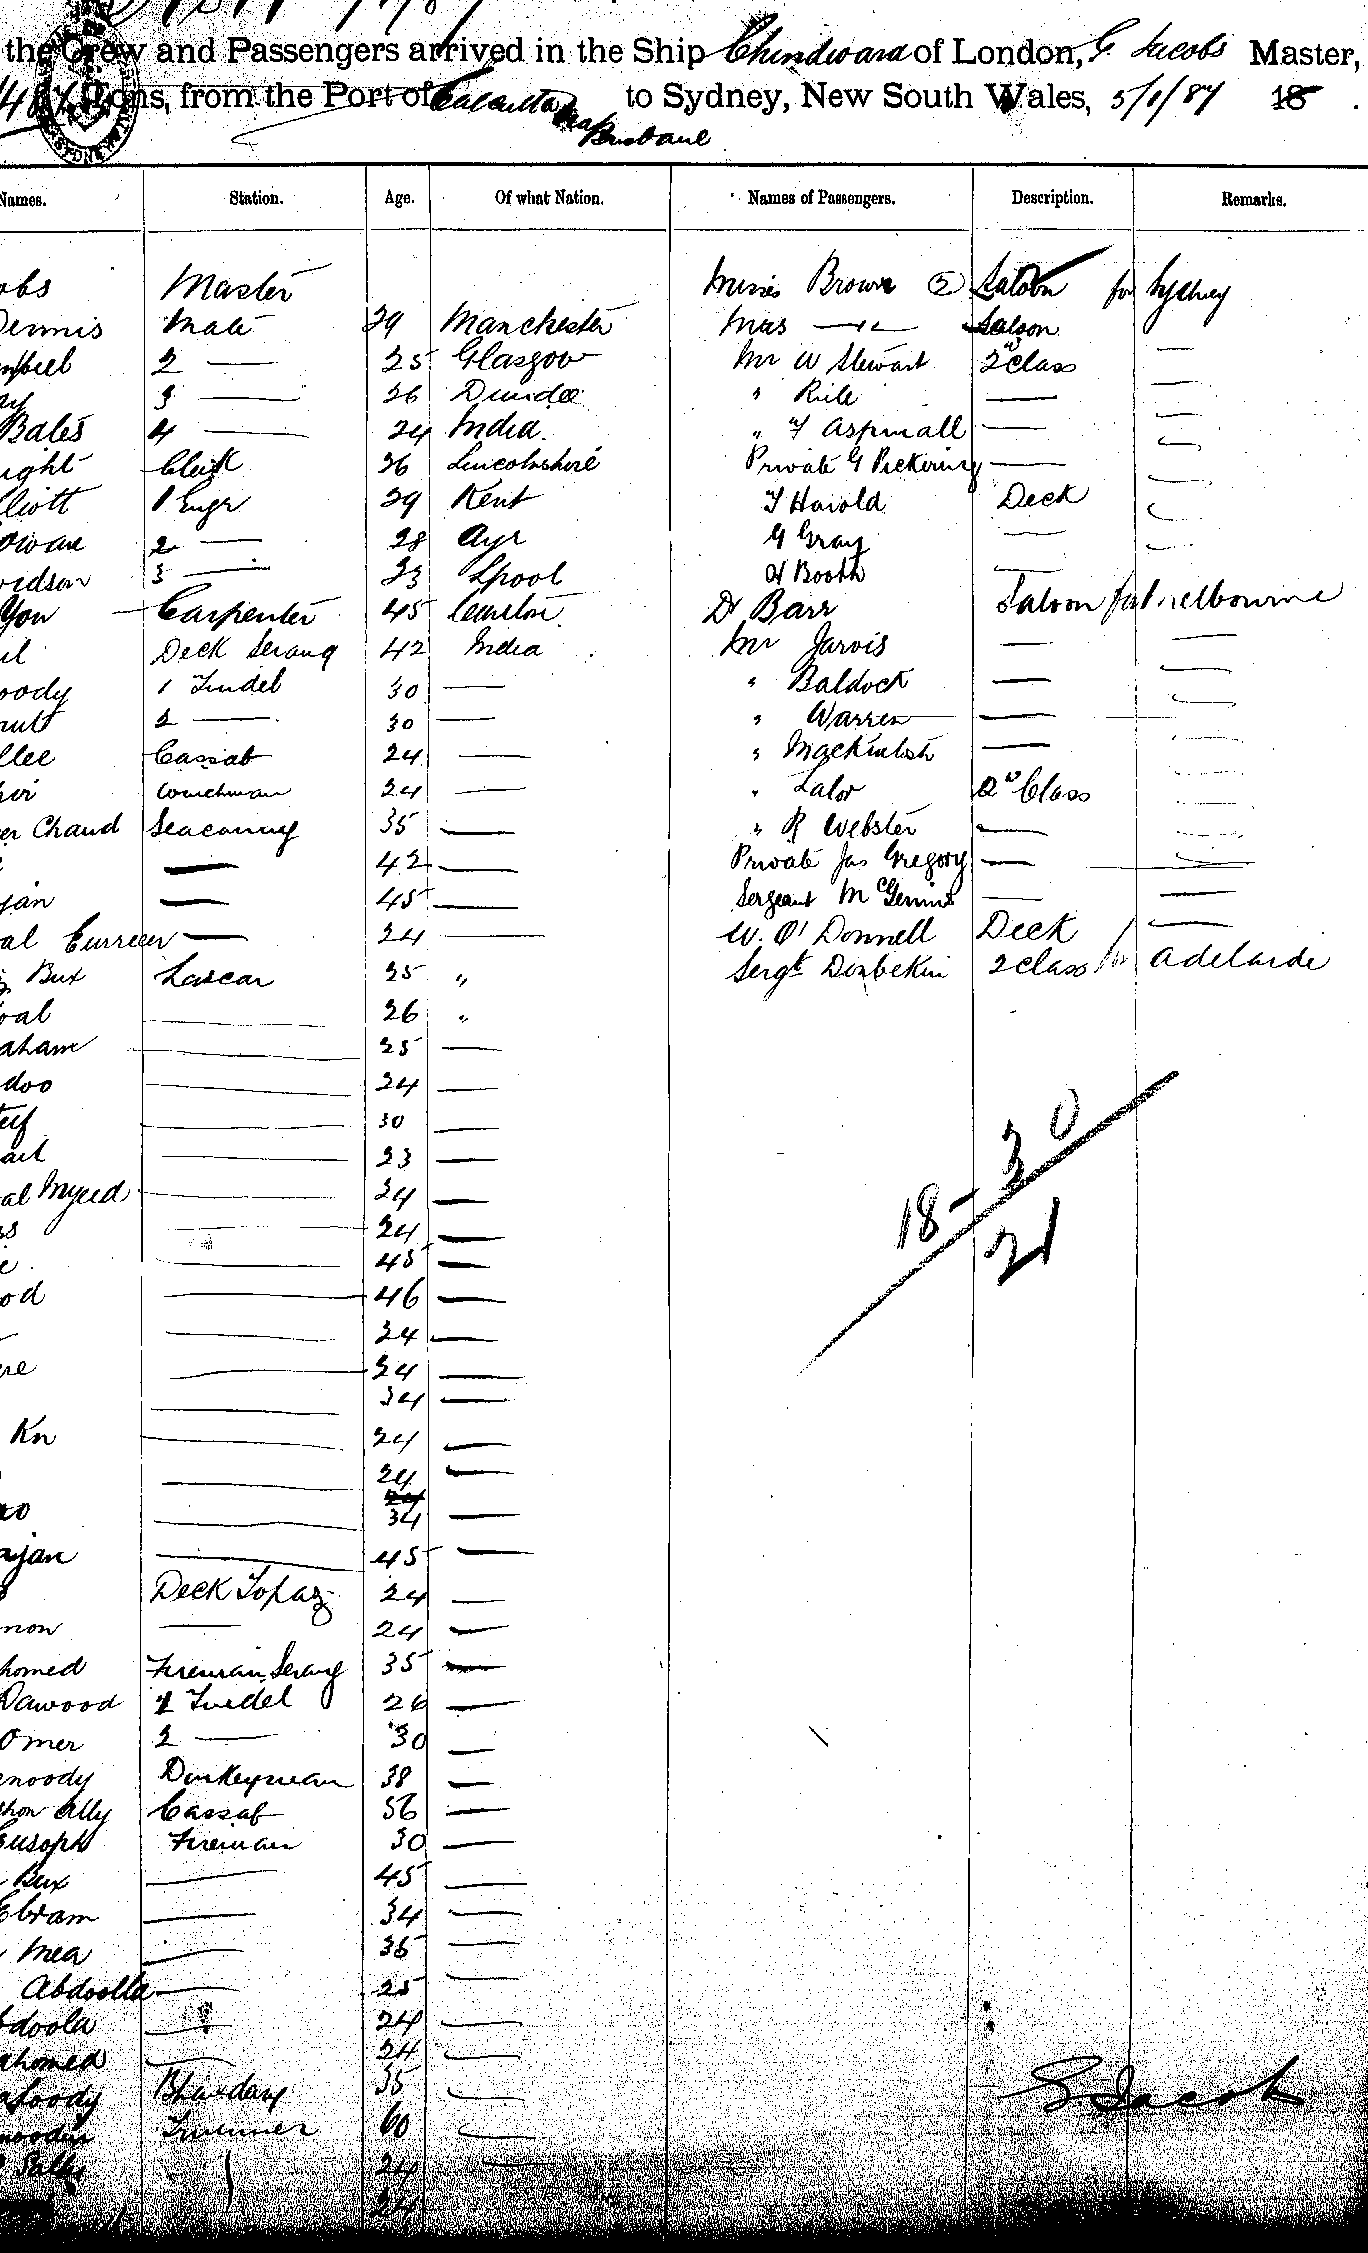 the Crew and Passengers arrived in the Ship Chindwara of London, G Jacobs Master,
Tons, from the Port of Calcutta via Brisbane to Sydney, New South Wales, 5/1/87 18
Names. Station. Age. Of what Nation. Names of Passengers. Description. Remarks.
obs Master Misses Brown (2) Saloon for Sydney
Dennis Mate 29 Manchester Mrs —"— Saloon
2 — 25 Glasgow — Mr W Stewart 2d Class —
3 — 26 Dundee " — —
Bates 4 — 24 India. " F Aspinall — —
ight Clerk 26 Lincolnshire Private G Pickering — —
lliott 1 Engr 29 Kent T Harold Deck —
owan 2 — 28 Ayr G Gray — —
vidson 3 — 23 Lpool Booth — —
You — Carpenter 45 Canton. Dr Barr Saloon for Melbourne
il Deck Serang 42 India Mr Jarvis — —
oody 1 Tindel 30 — " Baldock — —
2 — 30 — " Warren — —
llee Cassab 24 — " Mackintosh — —
24 — " Lalor 2d Class —
er Chand Seacunny 35 — " R Webster — —
— 42 — Private Jas Gregory — —
jan — 45 — Sergeant McGinnis — —
al Eurreem — 24 — W. O'Donnell Deck / —
Bux Lascar 25 " Sergt Donbekin 2 Class for Adelaide
oal — 26 "
aham — 25 —
doo — 24 —
— 30 —
— 23 —
al Myed — 24 —
ss — 24 —
e. — 45 —
od — 46 —
— 24 —
re — 24 —
— 34 —
Kn — 24 —
— 24 —
24
o — 34 —
ajan — 45 —
Deck Topaz 24 —
mon — 24 —
homed Fireman Serang 35 —
Dawood 1 Tindel 26 —
Omer 2 — 30 —
noody Donkeyman 38 —
Ally Cassab 56 —
Eusoph Fireman 30 —
Bux — 45 —
Ebram — 34 —
Mea — 36 —
Abdoolla — 25 —
bdoola — 24 —
ahomed — 24 —
oody Bhandary 35 —
Trimmer 60 —
24 —
24
18 - 30
21
G Jacobs